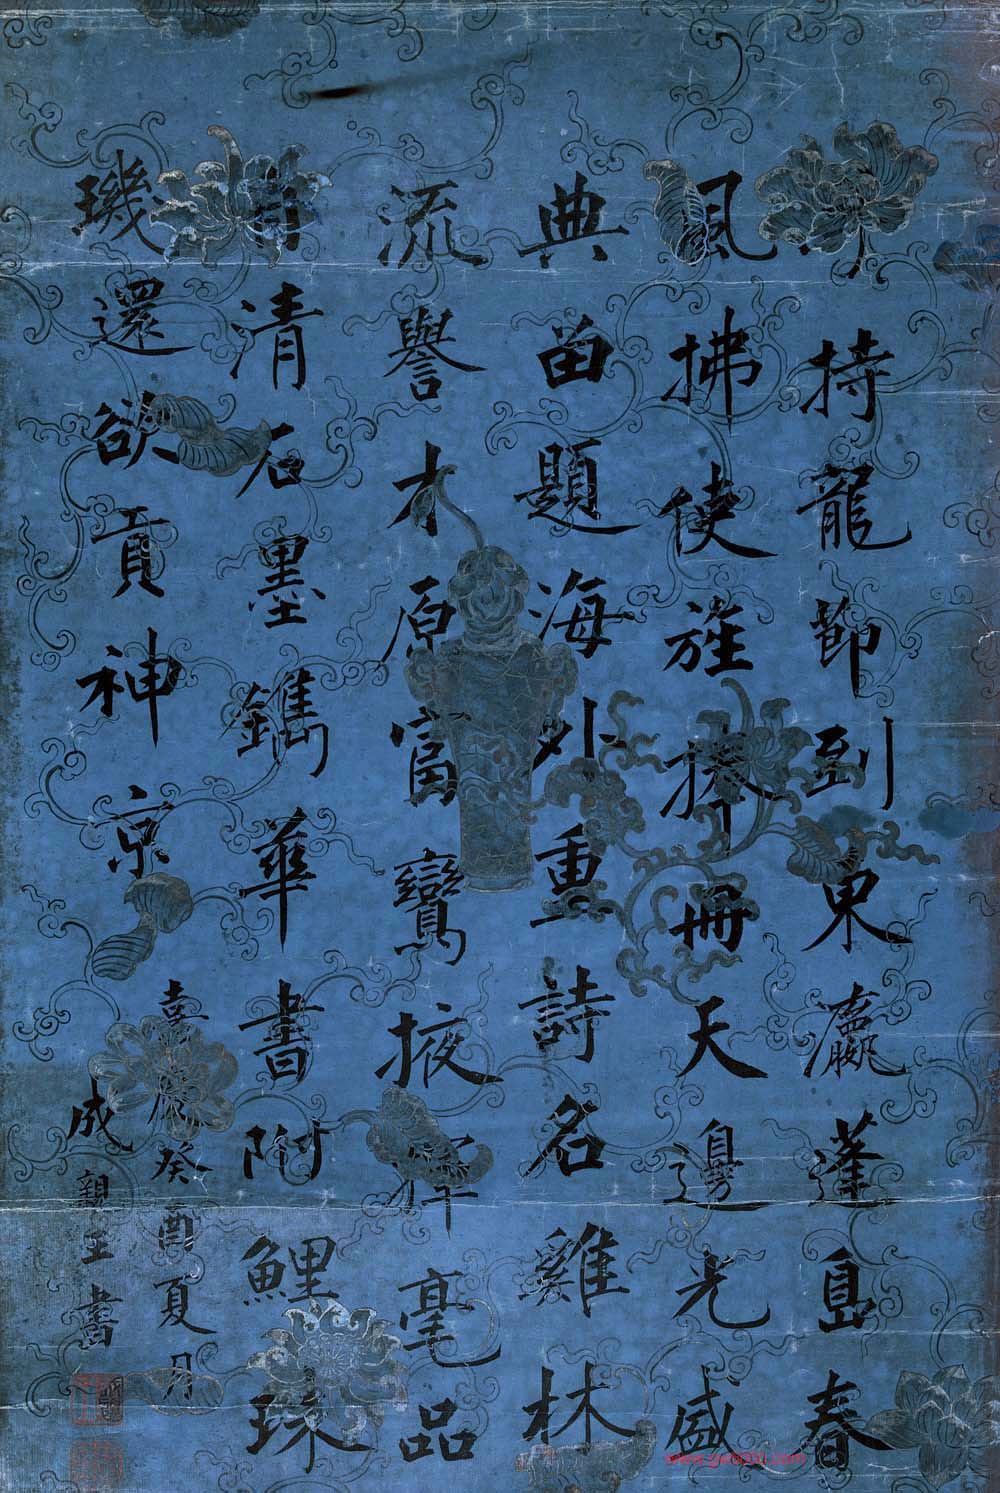 持龍節到東瀛蓬島春
風拂使旌捧冊天邊光盛
典留題海外重詩名雞林
流譽才原富鸞掖揮毫品
自清石墨鐫華書附鯉珠
璣還欲貢神京
嘉慶癸酉夏月
成親王書